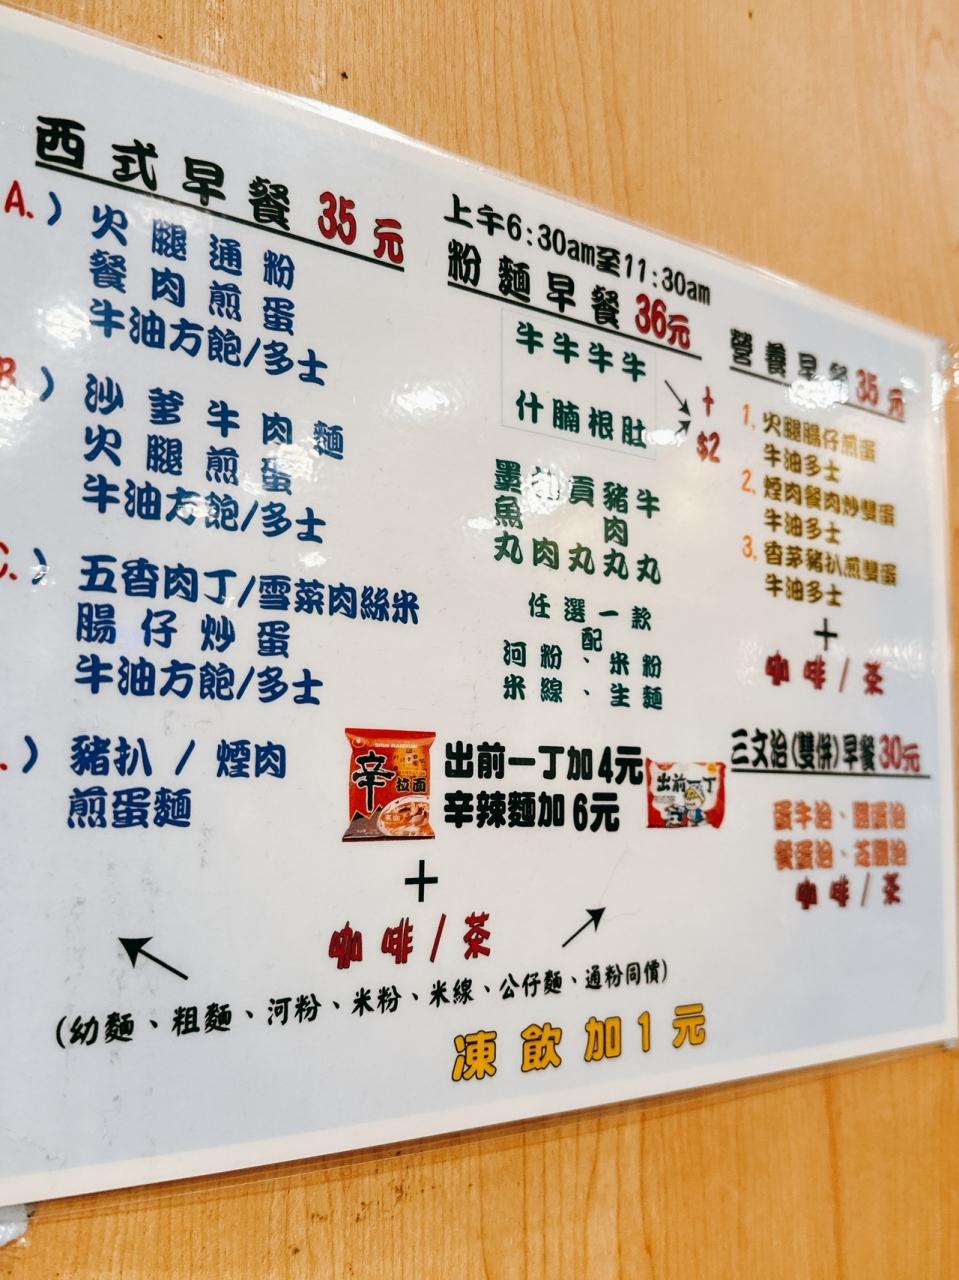 西式早餐 35元
A.) 火腿通粉
餐肉煎蛋
牛油方飽/多士
B.) 沙爹牛肉麵
火腿煎蛋
牛油方飽/多士
C.) 五香肉丁/雪菜肉絲米
腸仔炒蛋
牛油方飽/多士
.) 豬扒 / 煙肉
煎蛋麵
上午6:30am至11:30am
粉麵早餐 36元
牛牛牛牛
什腩根肚
+
$2
墨 貢豬牛
魚 肉
丸肉丸丸丸
任選一款
配
河粉、米粉
米線、生麵
辛
拉面
出前一丁加4元
辛辣麵加6元
出前一丁
+
咖啡/茶
(幼麵、粗麵、河粉、米粉、米線、公仔麵、通粉同價)
凍飲加1元
營養早餐 35元
1. 火腿腸仔煎蛋
牛油多士
2. 煙肉餐肉炒雙蛋
牛油多士
3. 香茅豬扒煎雙蛋
牛油多士
+
咖啡/茶
三文治(雙併)早餐30元
蛋牛治、腿蛋治
餐蛋治、芝腿治
咖啡/茶